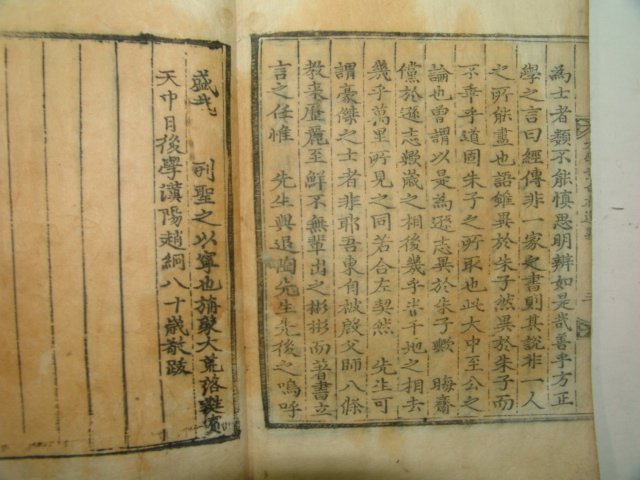 為士者類不能慎思明辨如是哉善乎方正
學之言曰經傳非一家之書則其說非一人
之所能盡也語雖異於朱子然異於朱子而
不乖乎道固朱子之所取也此大中至公之
論也曾謂以是為遜志異於朱子歟　晦齋
儻於遜志歟歲之相後幾乎半千地之相去
幾乎萬里所見之同若合左契然　先生可
謂豪傑之士者非耶吾東自被殷父師八條
教來歷麗至鮮不無輩出之彬彬而著書立
言之任惟　先生與退陶先生先後之嗚呼
盛哉　列聖之以寧也旃蒙大荒落蕤賓
天中月後學漢陽趙絅八十歲敬跋